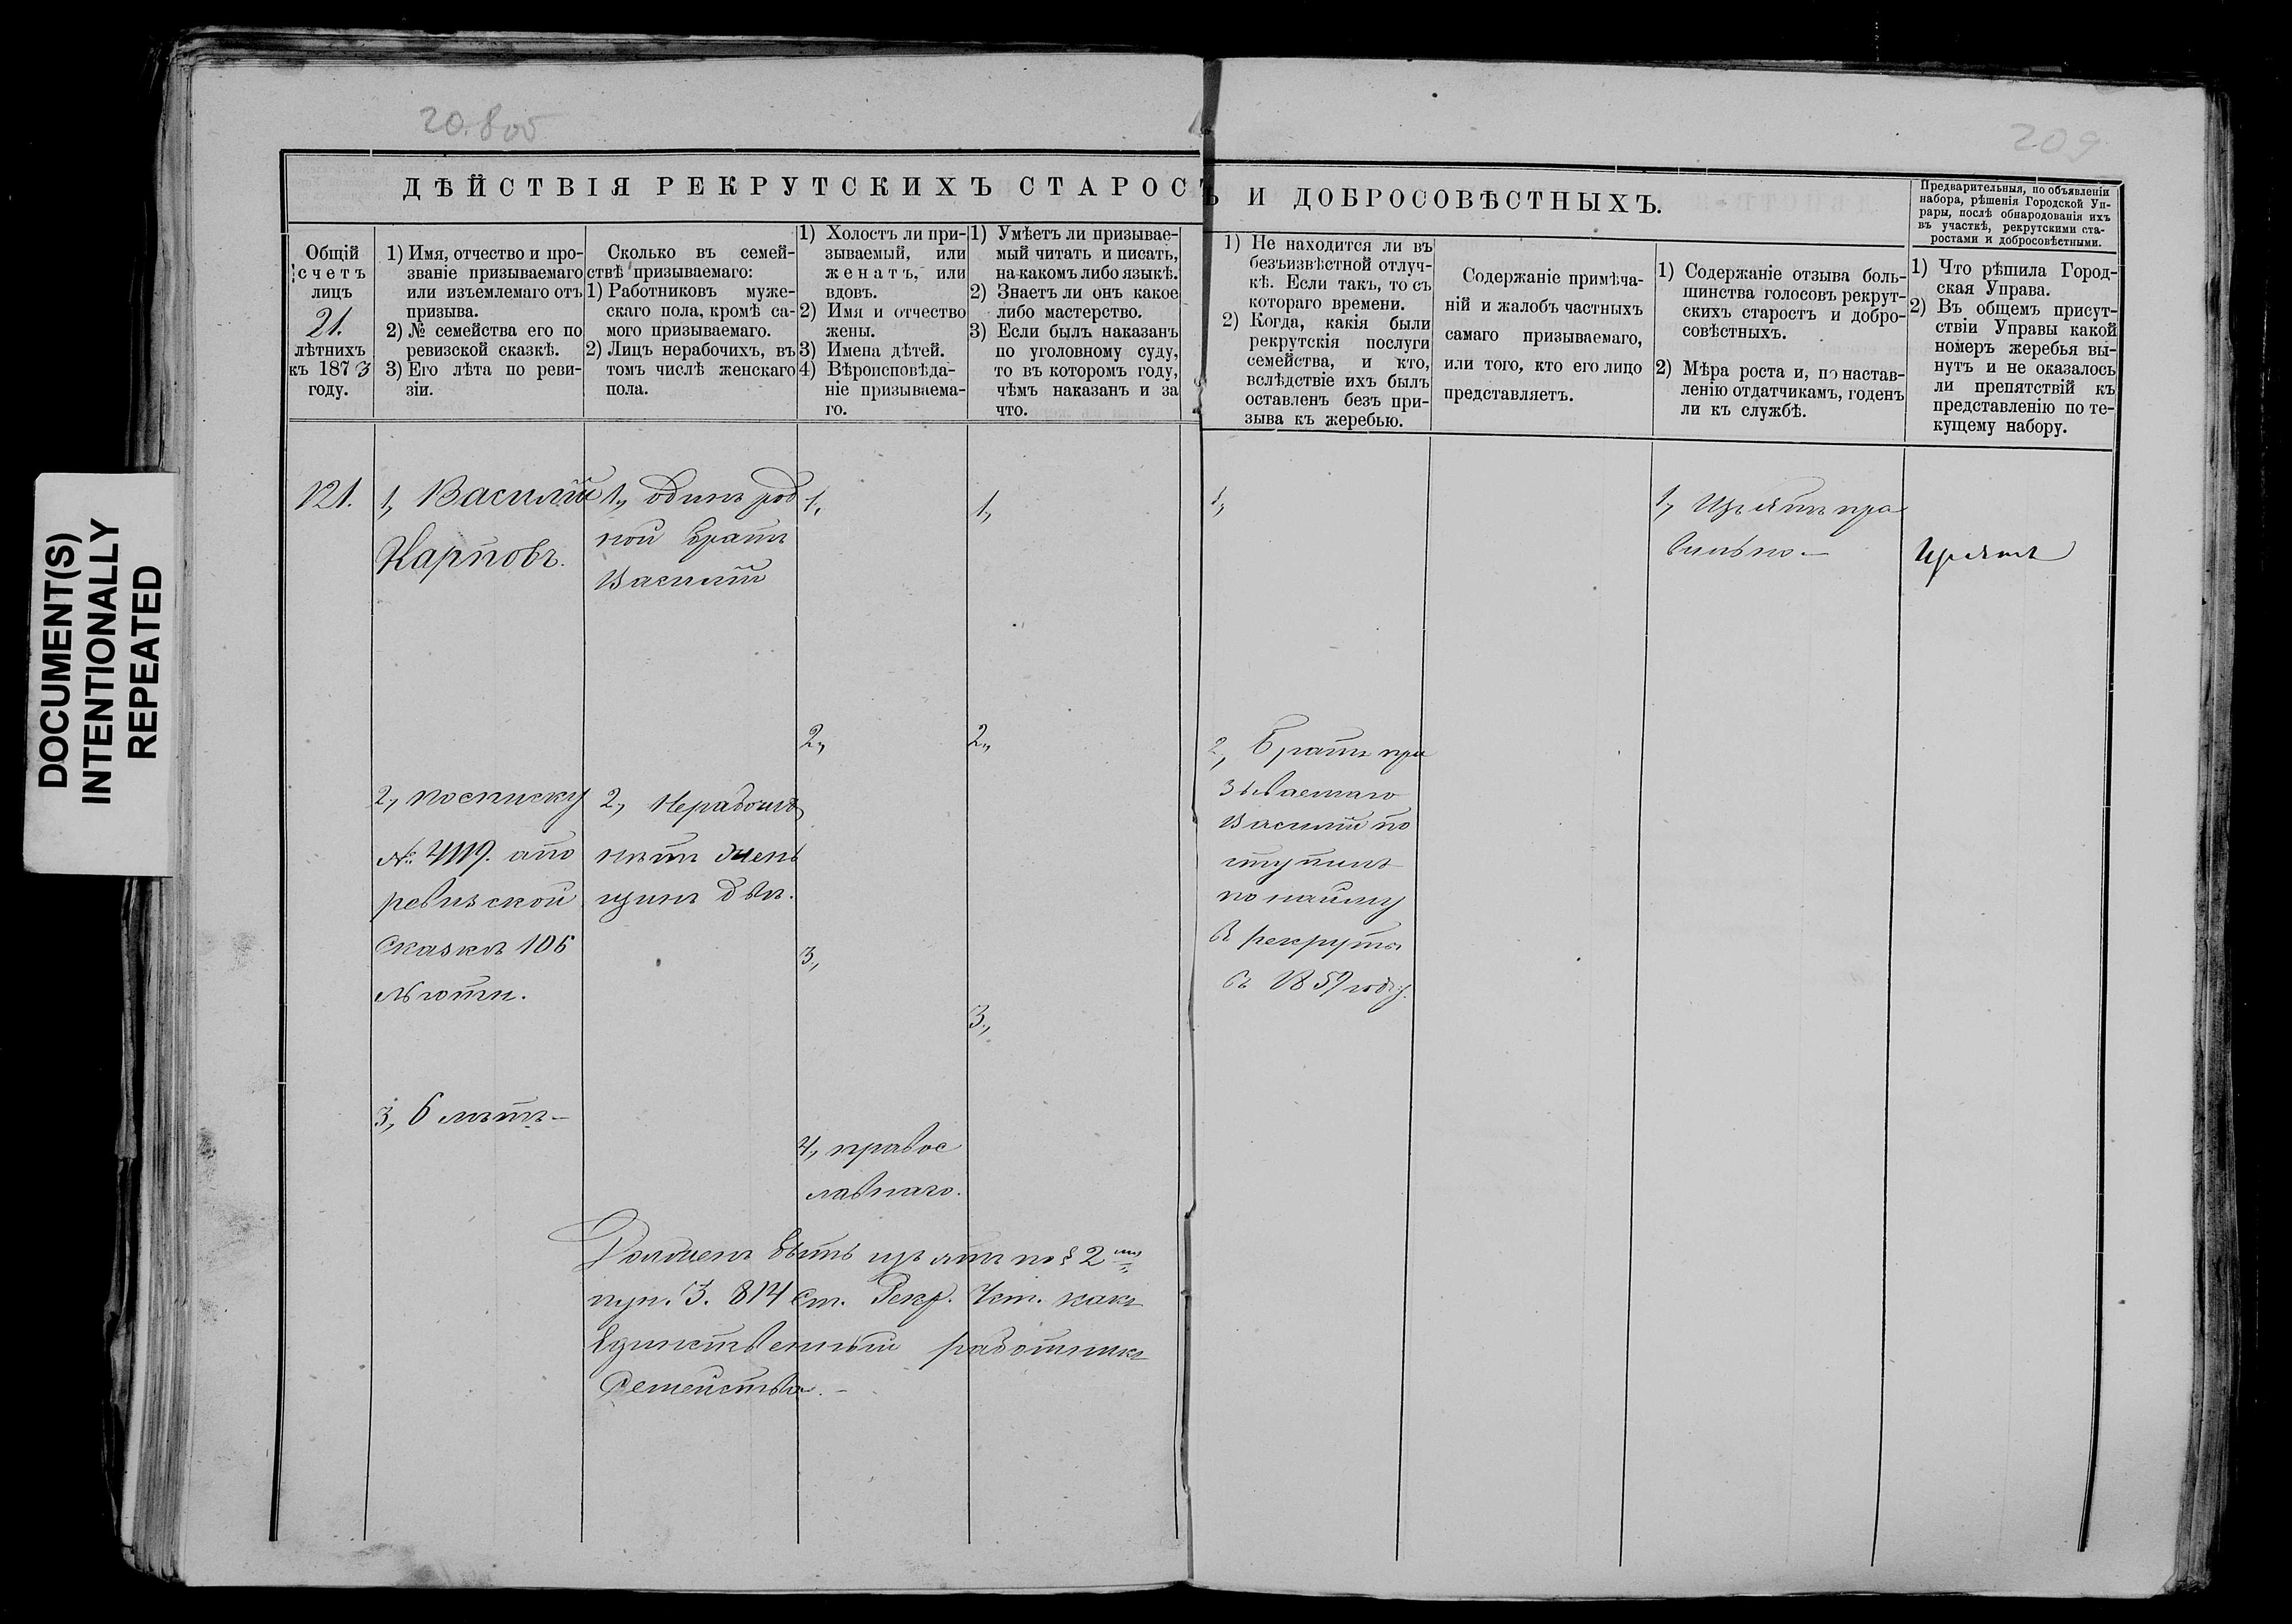 20.805
209
DOCUMENT(S)
INTENTIONALLY
REPEATED
ДѢЙСТВІЯ РЕКРУТСКИХЪ СТАРОСТЪ И ДОБРОСОВѢСТНЫХЪ.
Предварительныя, по объявленіи
набора, рѣшенія Городской Уп-
рары, послѣ обнародованія ихъ
въ участкѣ, рекрутскими ста-
ростами и добросовѣстными.
Общій
счетъ
лицъ
21.
лѣтнихъ
къ 1873
году.
1) Имя, отчество и про-
званіе призываемаго
или изъемлемаго отъ
призыва.
2) № семейства его по
ревизской сказкѣ.
3) Его лѣта по реви-
зіи.
Сколько въ семей-
ствѣ призываемаго:
1) Работниковъ муже-
скаго пола, кромѣ са-
мого призываемаго.
2) Лицъ нерабочихъ, въ
томъ числѣ женскаго
пола.
1) Холостъ ли при-
зываемый, или
женатъ, или
вдовъ.
2) Имя и отчество
жены.
3) Имена дѣтей.
4) Вѣроисповѣда-
ніе призываема-
го.
1) Умѣетъ ли призывае-
мый читать и писать,
на какомъ либо языкѣ.
2) Знаетъ ли онъ какое
либо мастерство.
3) Если былъ наказанъ
по уголовному суду,
то въ которомъ году,
чѣмъ наказанъ и за
что.
1) Не находится ли въ
безъизвѣстной отлуч-
кѣ. Если такъ, то съ
котораго времени.
2) Когда, какія были
рекрутскія послуги
семейства, и кто,
вслѣдствіе ихъ былъ
оставленъ безъ при-
зыва къ жеребью.
Содержаніе примѣча-
ній и жалобъ частныхъ
самаго призываемаго,
или того, кто его лицо
представляетъ.
1) Содержаніе отзыва боль-
шинства голосовъ рекрут-
скихъ старостъ и добро-
совѣстныхъ.
2) Мѣра роста и, по настав-
ленію отдатчикамъ, годенъ
ли къ службѣ.
1) Что рѣшила Город-
ская Управа.
2) Въ общемъ присут-
ствіи Управы какой
номеръ жеребья вы-
нутъ и не оказалось
ли препятствій къ
представленію по те-
кущему набору.
121.
1, Василій
Карповъ.
2, по списку
№ 4119. а по
ревизской
сказкѣ 106
льготн.
3, 6 лѣтъ—
1, одинъ род
ной братъ
Василій
2, Нерабочихъ
нѣтъ жен
щинъ двѣ.
1,
2,
3,
4, правос
лавнаго.
1,
2,
3,
Долженъ быть изъятъ по § 2му
пун. 3. 814 ст. Рекр. Уст. какъ
Единственный работникъ
Семейства. —
1,
2, Братъ при
зываемаго
Василій по
ступилъ
по найму
въ рекруты
въ 1859 году.
1, Изъятъ пра
вильно. —
Изъятъ